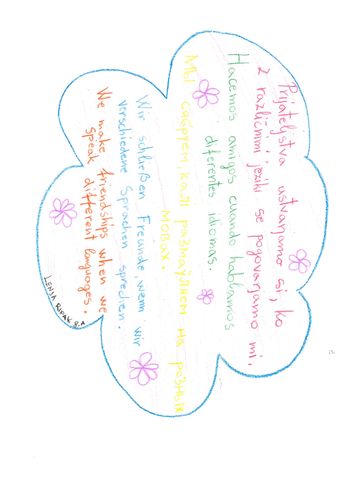 Prijateljstva ustvarjamo si, ko
z različnimi jeziki se pogovarjamo mi.
Hacemos amigos cuando hablamos
diferentes idiomas.
Мы сябруем, калі размаўляем на розных
мовах.
Wir schließen Freunde, wenn wir
verschiedene Sprachen sprechen.
We make friendships when we
speak different languages.
LENJA 8.A